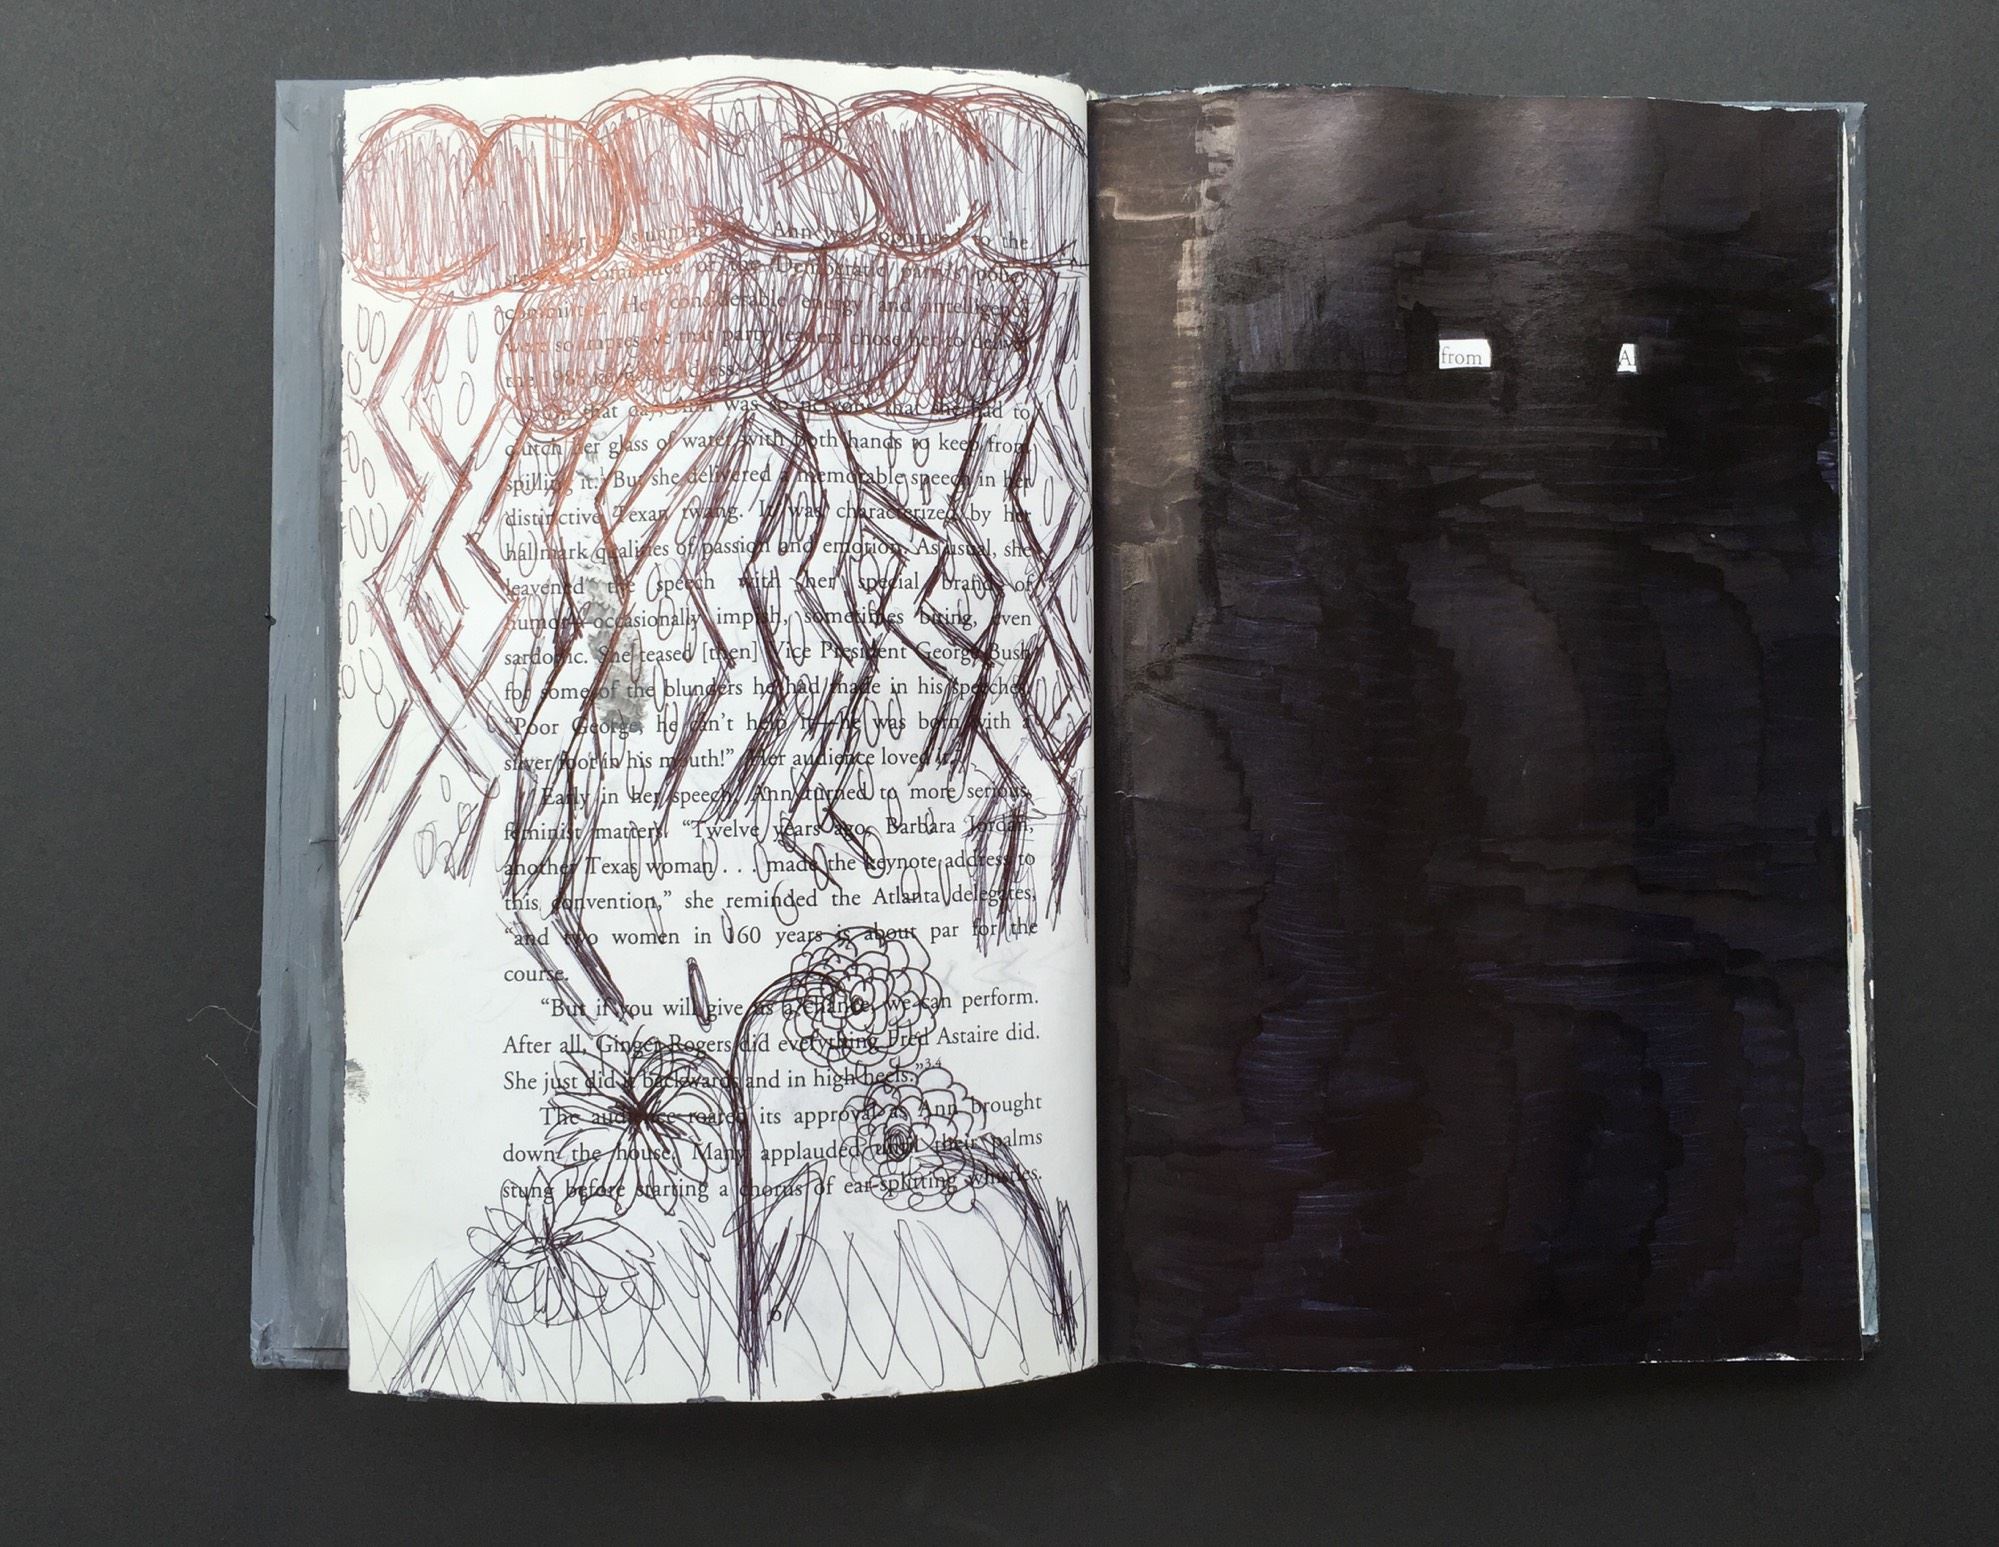 Ann was appointed to the
committee of the Democratic party's policy
committee. Her considerable energy and intelligence
were so impressive that party leaders chose her to deliver
the 1988 keynote address.
On that day, Ann was so nervous that she had to
clutch her glass of water with both hands to keep from
spilling it. But she delivered a memorable speech in her
distinctive Texan twang. It was characterized by her
hallmark qualities of passion and emotion. As usual, she
leavened the speech with her special brand of
humor—occasionally impish, sometimes biting, even
sardonic. She teased [then] Vice President George Bush
for some of the blunders he had made in his speeches.
"Poor George, he can't help it—he was born with a
silver foot in his mouth!" Her audience loved it.
Early in her speech, Ann turned to more serious,
feminist matters. "Twelve years ago, Barbara Jordan,
another Texas woman . . . made the keynote address to
this convention," she reminded the Atlanta delegates,
"and two women in 160 years is about par for the
course.
"But if you will give us a chance, we can perform.
After all, Ginger Rogers did everything Fred Astaire did.
She just did it backwards and in high heels."34
The audience roared its approval as Ann brought
down the house. Many applauded until their palms
stung before starting a chorus of ear-splitting whistles.
from A